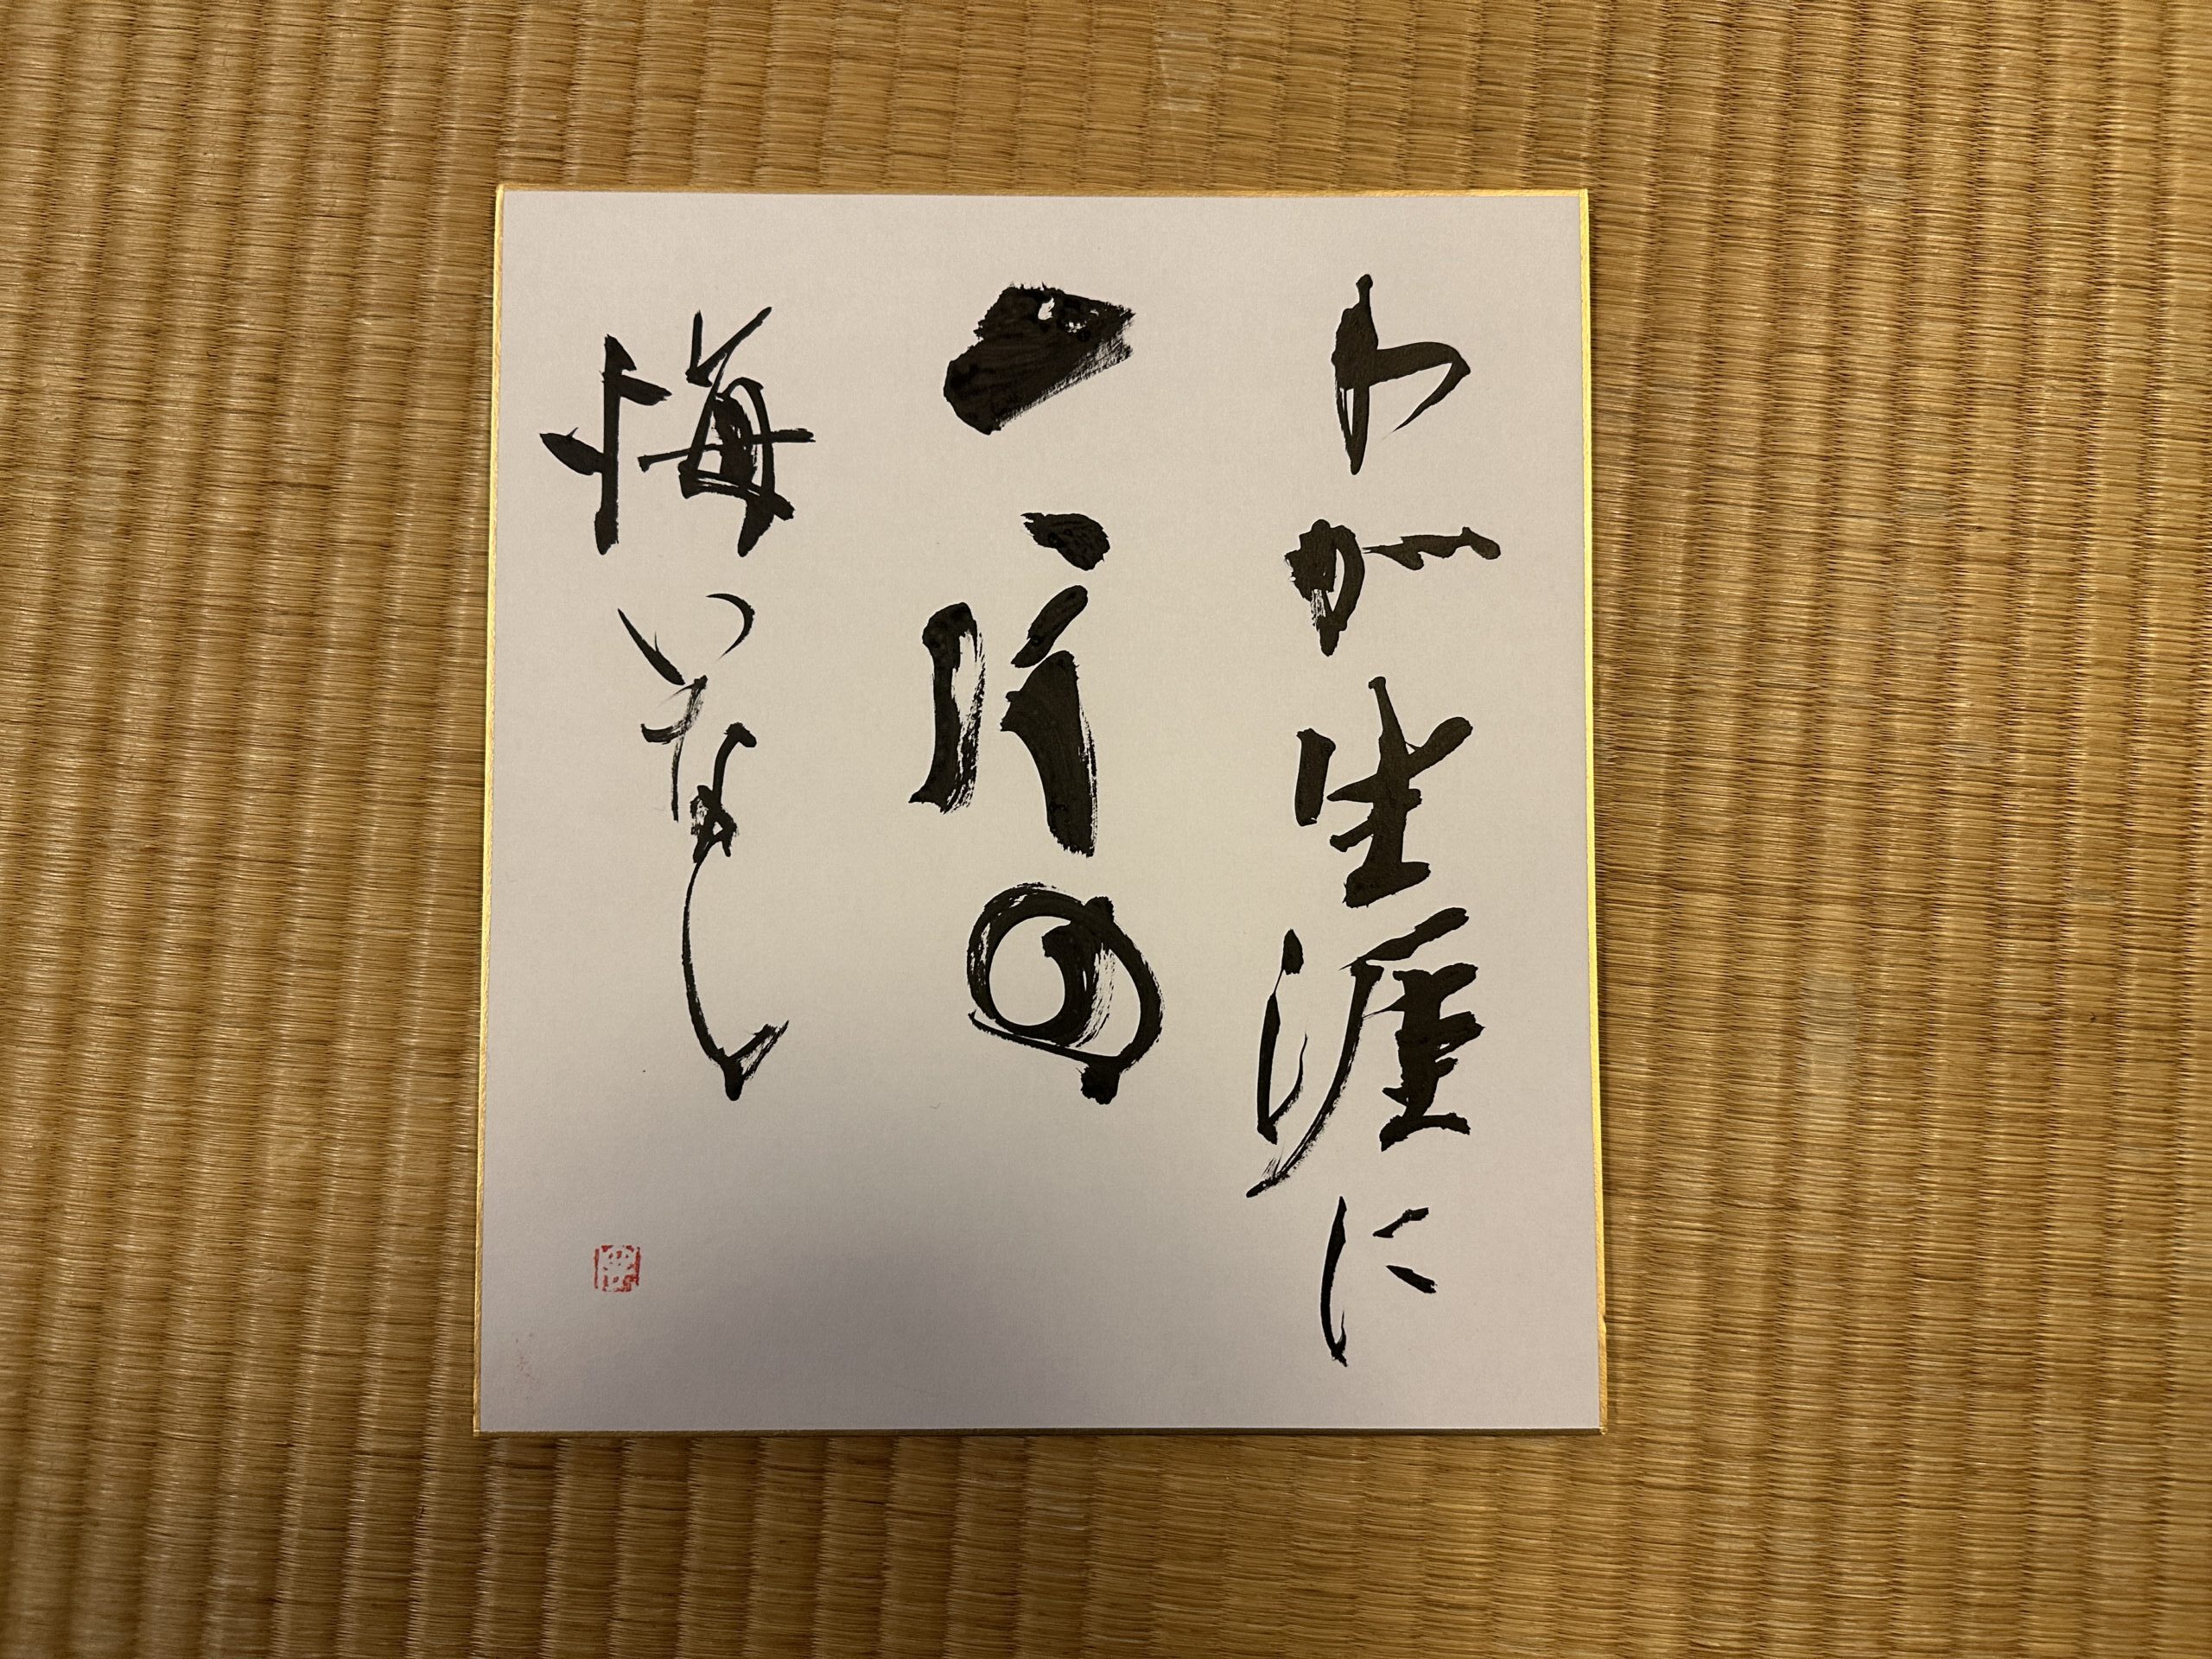 わが生涯に
一片の
悔いなし